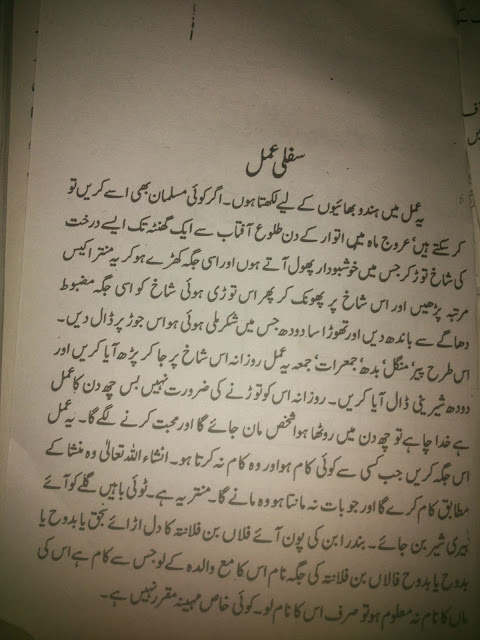 سفلی عمل
یہ عمل میں ہندو بھائیوں کے لیے لکھتا ہوں۔ اگر کوئی مسلمان بھی اسے کریں تو
کر سکتے ہیں، عروج ماہ میں اتوار کے دن طلوع آفتاب سے ایک گھنٹہ تک ایسے درخت
کی شاخ توڑ کر جس میں خوشبودار پھول آتے ہوں اور اسی جگہ کھڑے ہو کر یہ منتر اکیس
مرتبہ پڑھیں اور اس شاخ پر پھونک کر پھر اس توڑی ہوئی شاخ کو اسی جگہ مضبوط
دھاگے سے باندھ دیں اور تھوڑا سا دودھ جس میں شکر ملی ہوئی ہو اس جوڑ پر ڈال دیں۔
اس طرح پیر، منگل، بدھ، جمعرات، جمعہ یہ عمل روزانہ اس شاخ پر جا کر پڑھ آیا کریں اور
دودھ شیرینی ڈال آیا کریں۔ روزانہ اس کو توڑنے کی ضرورت نہیں بس چھ دن کا عمل
ہے خدا چاہے تو چھ دن میں روٹھا ہوا شخص مان جائے گا اور محبت کرنے لگے گا۔ یہ عمل
اس جگہ کریں جب کسی سے کوئی کام ہو اور وہ کام نہ کرتا ہو۔ انشاء اللہ تعالیٰ وہ منشا کے
مطابق کام کرے گا اور جو بات نہ مانتا ہو وہ مانے گا۔ منتر یہ ہے۔ ٹوٹی باہیں گلے کو آئے
بیری شیر بن جائے۔ بندرابن کی پون آئے فلاں بن فلانتہ کا دل اڑائے بحق یا بدوح یا
بدوح یا بدوح فالاں بن فلانتہ کی جگہ نام اس کا مع والدہ کے لو جس سے کام ہے اس کی
ماں کا نام نہ معلوم ہو تو صرف اس کا نام لو۔ کوئی خاص مہینہ مقرر نہیں ہے۔